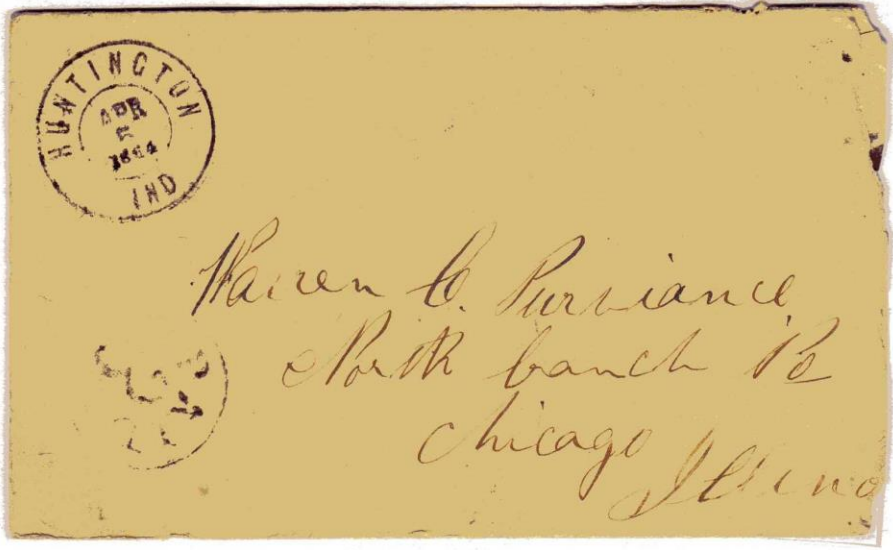 HUNTINGTON
APR
5
1864
IND
Warren C. Purviance
North banch Po
Chicago
Illino